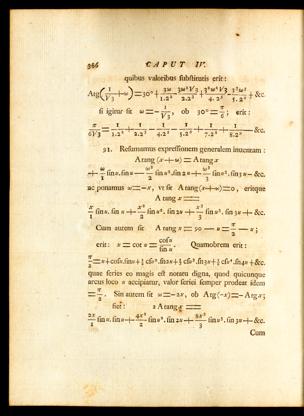 386 CAPUT IV.
quibus valoribus substitutis erit:
Arg(1/√3 + ω) = 30° + 3ω/1.2² − 3ω²√3/2.2³ + 3²ω³/5.2⁵ + &c.
si igitur sit ω = − 1/√3, ob 30° = π/6; erit:
π/6√3 = 1/1.2² + 1/2.2² − 1/4.2⁴ − 1/5.2⁵ + 1/7.2⁷ + 1/8.2⁸ − &c.
91. Resumamus expressionem generalem inuentam:
A tang (x + ω) = A tang x
+ ω/1 sin u. sin u − ω²/2 sin u². sin 2u + ω³/3 sin u³. sin 3u − &c.
ac ponamus ω = −x, vt sit A tang (x + ω) = 0, eritque
A tang x =
x/1 sin u. sin u + x²/2 sin u². sin 2u + x³/3 sin u³. sin 3u + &c.
Cum autem sit A tang x = 90 − u = π/2 − u;
erit: x = cot u = cos u/sin u. Quamobrem erit:
π/2 = u + cos u. sin u + ½ cos u². sin 2u + ⅓ cos u³. sin 3u + ¼ cos u⁴. sin 4u + &c.
quae series eo magis est notatu digna, quod quicunque
arcus loco u accipiatur, valor seriei semper prodeat idem
= π/2. Sin autem sit ω = −2x, ob Arg(−x) = − Arg x;
fiet: 2 A tang x =
2x/1 sin u. sin u − 4x²/2 sin u². sin 2u + 8x³/3 sin u³. sin 3u − &c.
Cum